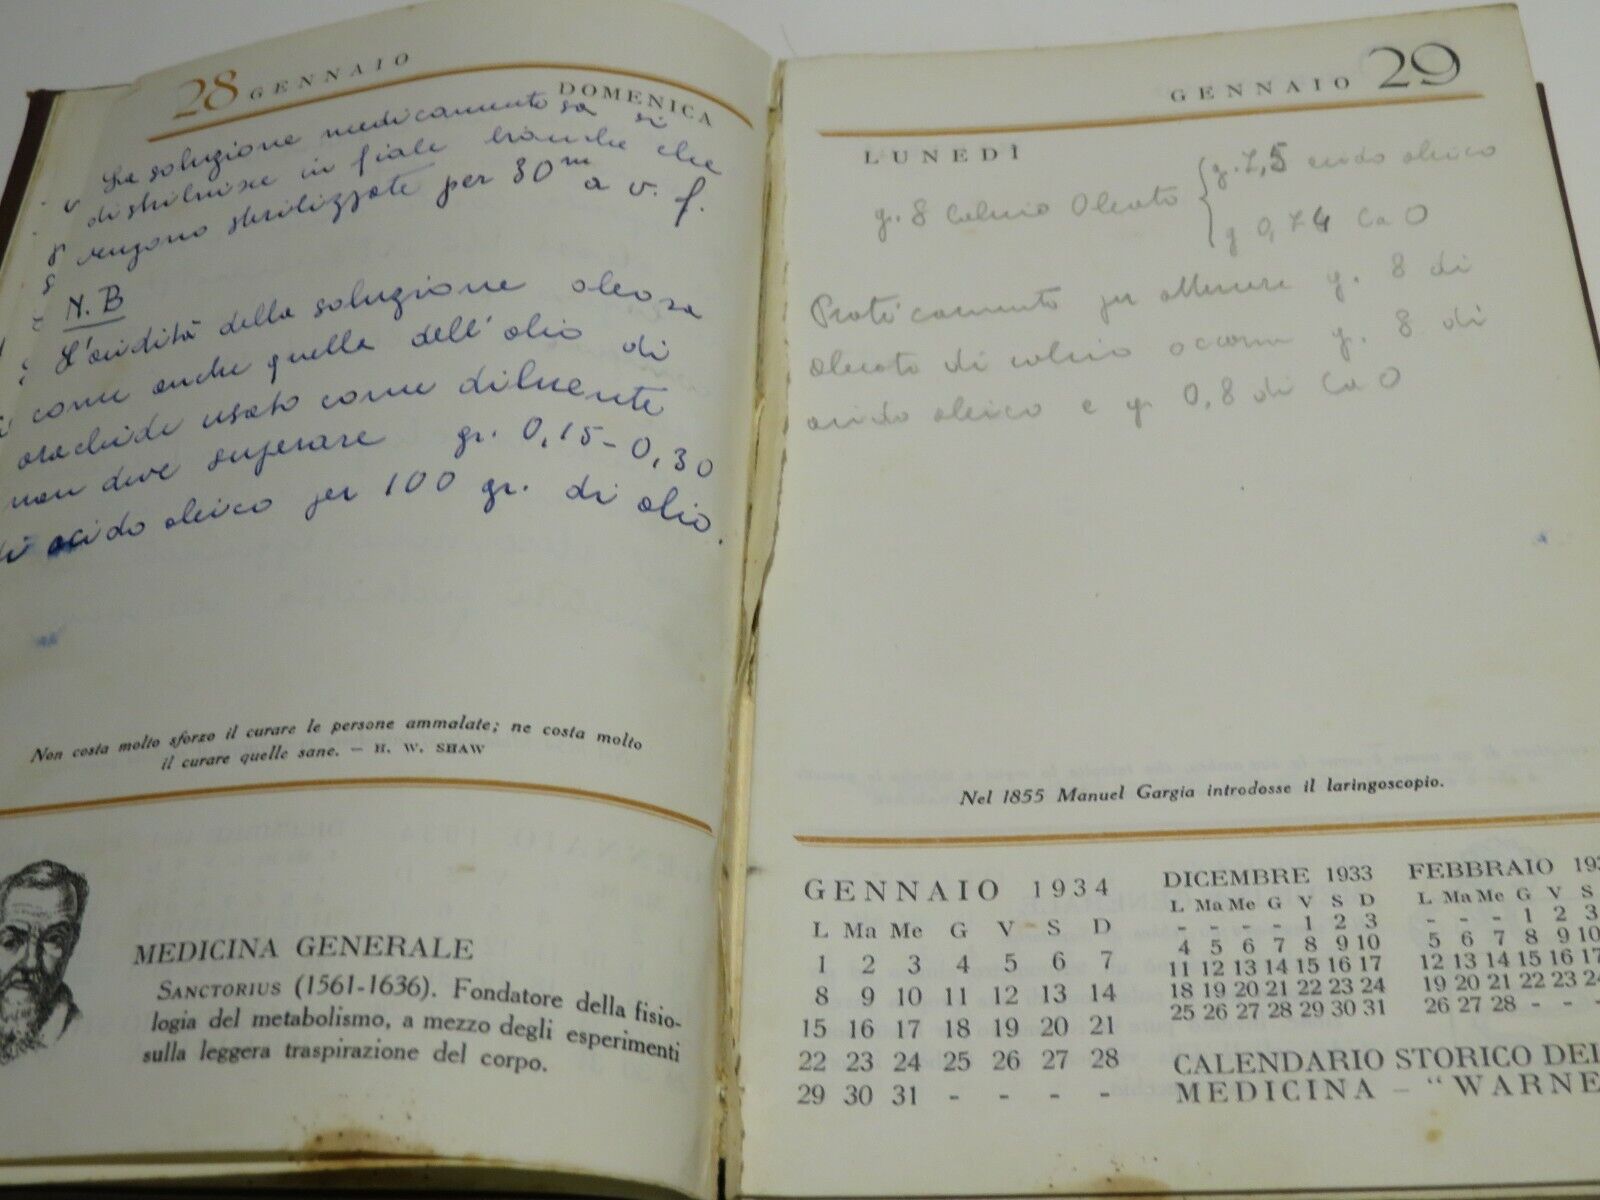 28 GENNAIO
DOMENICA
La soluzione medicamentosa si
distribuisce in fiale bianche che
vengono sterilizzate per 30ᵐ a v. f.
N.B
L'acidità della soluzione oleosa
come anche quella dell'olio di
arachide usato come diluente
non deve superare gr. 0,15-0,30
di acido oleico per 100 gr. di olio.
Non costa molto sforzo il curare le persone ammalate; ne costa molto
il curare quelle sane. — H. W. SHAW
MEDICINA GENERALE
SANCTORIUS (1561-1636). Fondatore della fisio-
logia del metabolismo, a mezzo degli esperimenti
sulla leggera traspirazione del corpo.
GENNAIO 29
LUNEDÌ
g. 8 Calcio Oleato { g. 7,5 acido oleico
g 0,74 CaO
Praticamente per ottenere g. 8 di
oleato di calcio occorrono g. 8 di
acido oleico e g. 0,8 di CaO
Nel 1855 Manuel Gargia introdosse il laringoscopio.
GENNAIO 1934
L Ma Me G V S D
1 2 3 4 5 6 7
8 9 10 11 12 13 14
15 16 17 18 19 20 21
22 23 24 25 26 27 28
29 30 31 - - - -
DICEMBRE 1933
L Ma Me G V S D
- - - - 1 2 3
4 5 6 7 8 9 10
11 12 13 14 15 16 17
18 19 20 21 22 23 24
25 26 27 28 29 30 31
FEBBRAIO 193
L Ma Me G V S
- - - 1 2 3
5 6 7 8 9 10
12 13 14 15 16 17
19 20 21 22 23 24
26 27 28 - - -
CALENDARIO STORICO DEL
MEDICINA - "WARNE